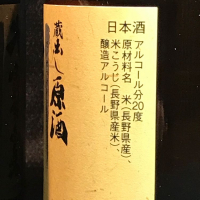 日本酒
アルコール分20度
原材料名 米(長野県産)、
米こうじ(長野県産米)、
醸造アルコール
蔵出し原酒